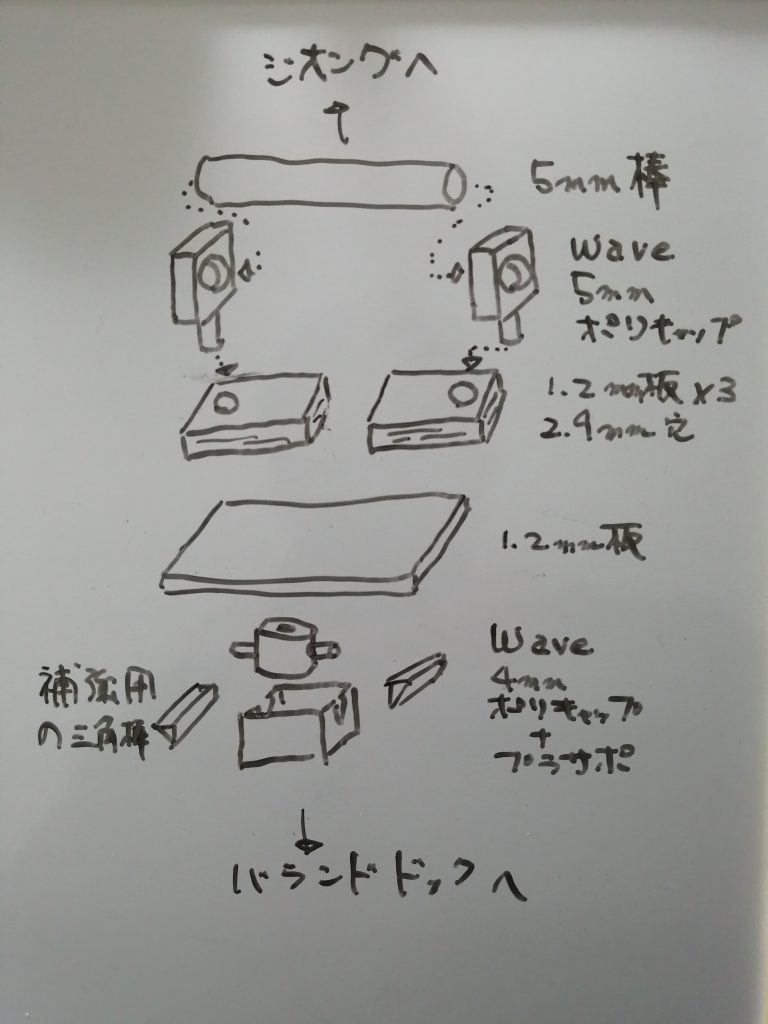 ジオングへ
5mm棒
Wave
5mm
ポリキャップ
1.2mm板×3
2.9mm穴
1.2mm板
Wave
4mm
ポリキャップ
+
プラサポ
補強用
の三角棒
バランドドックへ